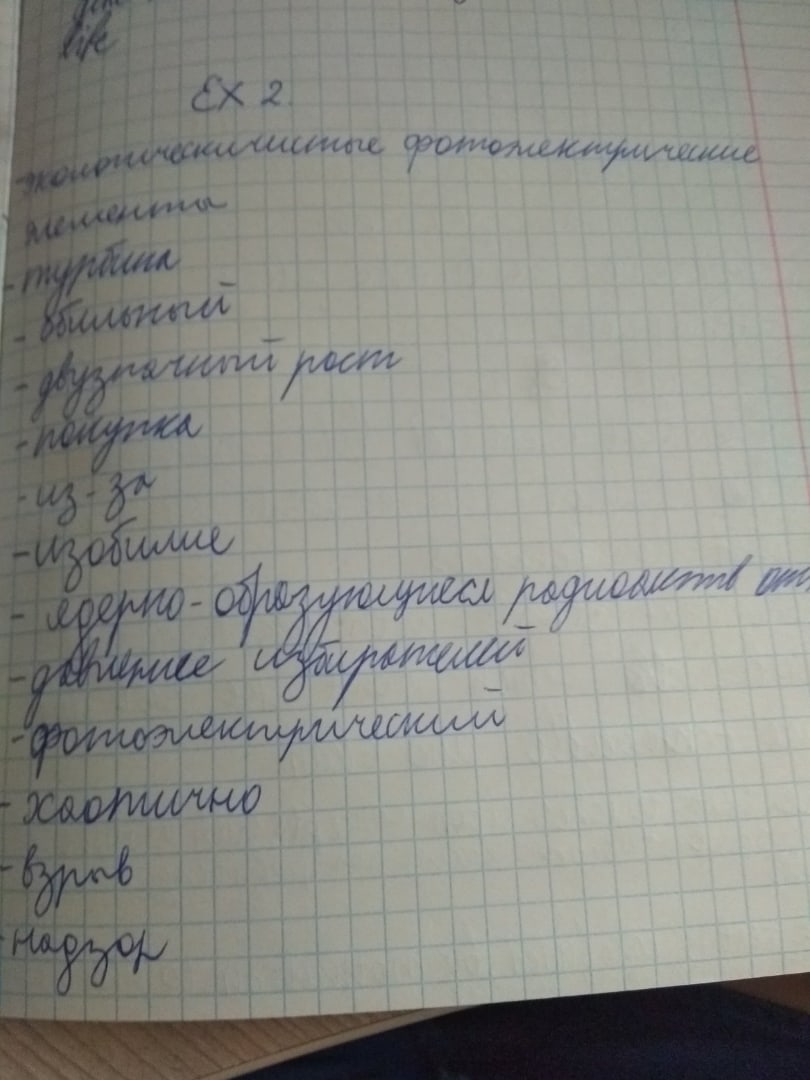 life
EX 2.
экологическичистые фотоэлектрические
элементы
-турбина
-обильный
-двузначный рост
-покупка
-из-за
-изобилие
- ядерно-образующиеся радиоактв
-давление избирателей
-фотоэлектрический
-хаотично
-взрыв
-надзор